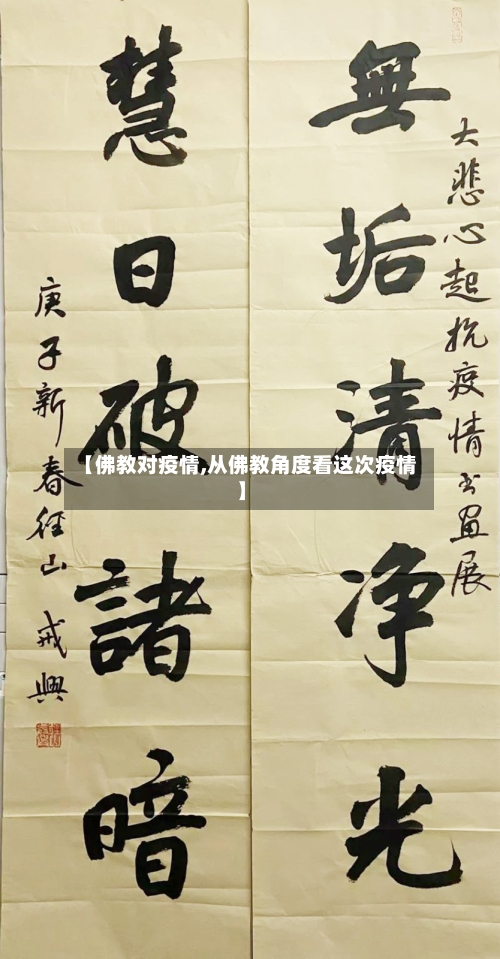 大悲心起抗疫情书画展
無垢清净光
慧日破諸暗
庚子新春径山 戒興
【佛教对疫情,从佛教角度看这次疫情
】